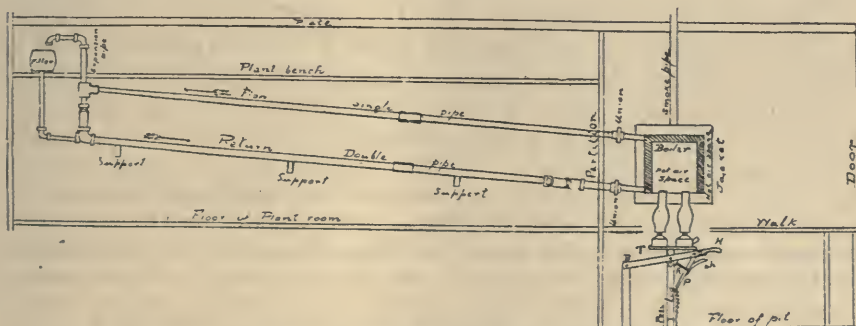 Plate
Filler
Expansion pipe
Plant bench
Flow single pipe
Return Double pipe
Support
Support
Support
Floor of Plant room
Partition
Union
Union
Smoke pipe
Boiler
Hot air space
Hot air space
Jacket
Door
Walk
T
O
H
B
P
Floor of pit